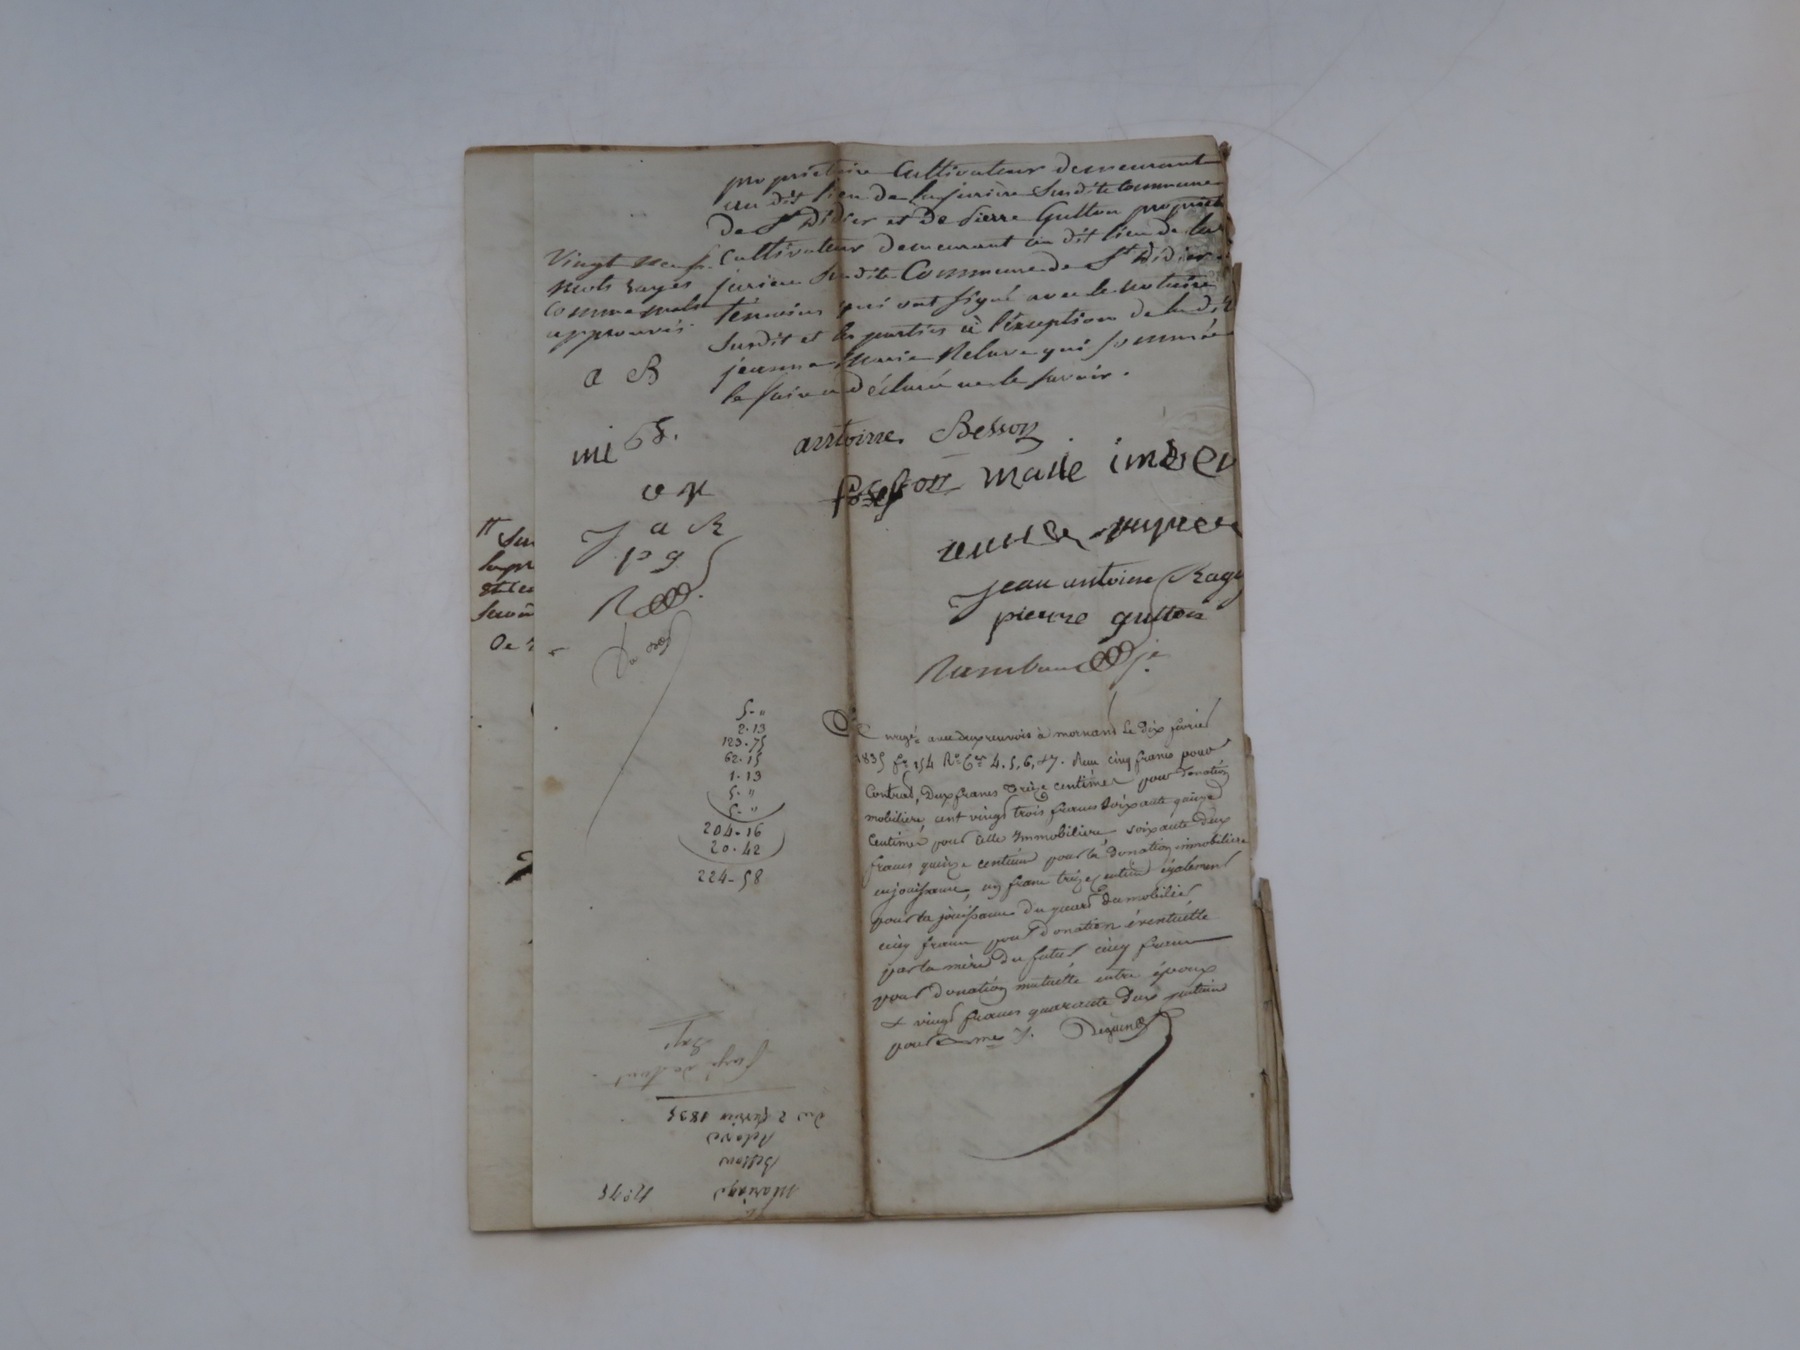 propriétaire Cultivateur demeurant
au dit lieu de la jurière Susdite Commune
De St Didier et De Pierre Gutton propriét
Cultivateur demeurant au dit lieu de la
jurière Susdite Commune de St Didier
témoins qui ont signé avec le notaire
Susdit et les parties à l'éxception de la dite
jeanne Marie Relave qui sommée
le faire a déclaré ne le savoir.
Vingt neuf
mots rayés
comme nuls
approuvés
a B
mi
J a R
p g
antoine Besson
Besson marie
jean antoine Rag
pierre gutton
Rambaud
5-"
2-13
123-75
62-15
1-13
5-"
5-"
204-16
20-42
224-58
aux deux renvois à mornand le dix février
1835 fo 154 Ro Ces 4.5.6, et 7. Reçu cinq francs pour
Contrat, Deux francs treize centimes pour donation
mobilière, cent vingt trois francs soixante quinze
Centimes pour celle Immobilière, soixante deux
francs quinze centimes pour la donation immobilière
en jouissance, un franc treize centimes également
pour la jouissance du quart du mobilier
cinq francs pour donation éventuelle
par la mère du futur cinq francs
pour donation mutuelle entre époux
& vingt francs quarante deux centimes
pour
Du 2 février 1835
Relave
Besson
Mariage
No 75